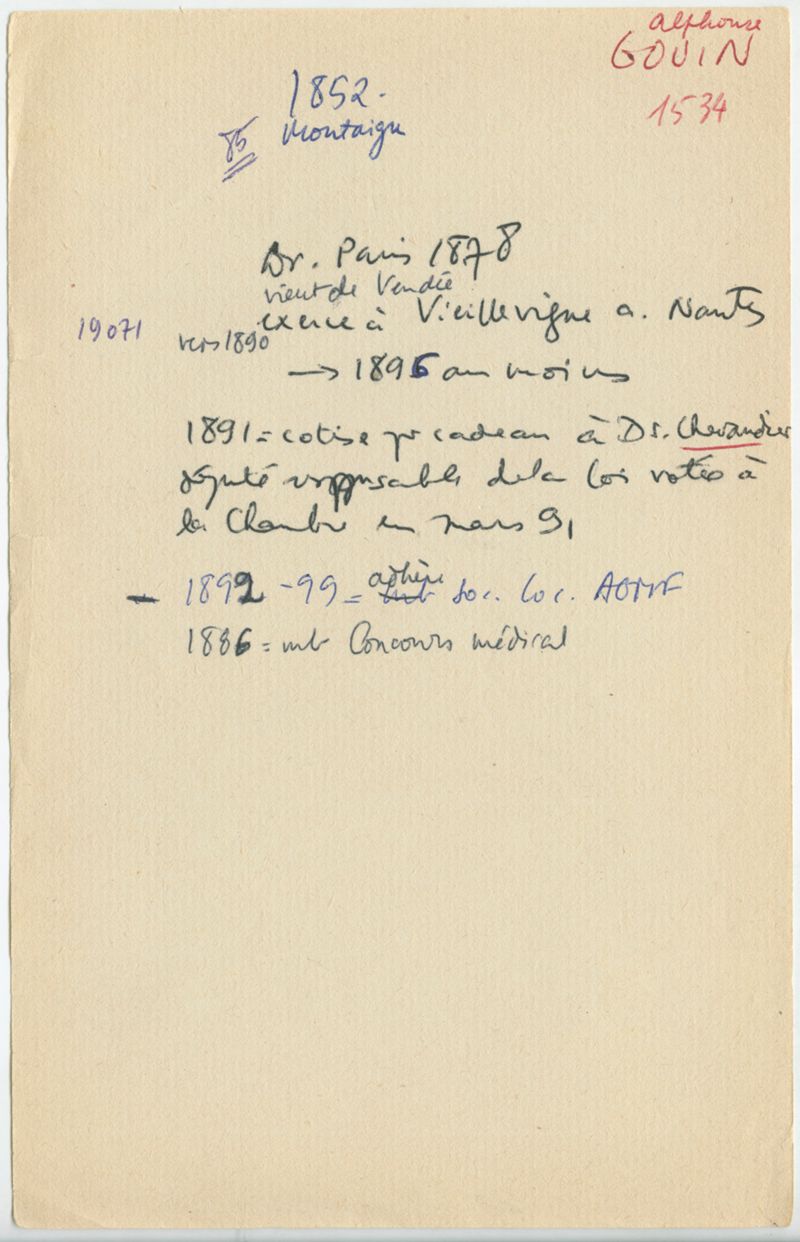 alphonse
GOUIN
1534
1852.
85 Montaigu
Dr. Paris 1878
vient de Vendée
19071 vers 1890 exerce à Vieillevigne a. Nantes
→ 1896 au moins
1891 = cotise pr cadeau à Dr. Chevandier
député responsable de la loi votée à
la Chambre en mars 91
- 1892 - 99 = adhère mb soc. loc. AGMF
1886 = mb Concours médical